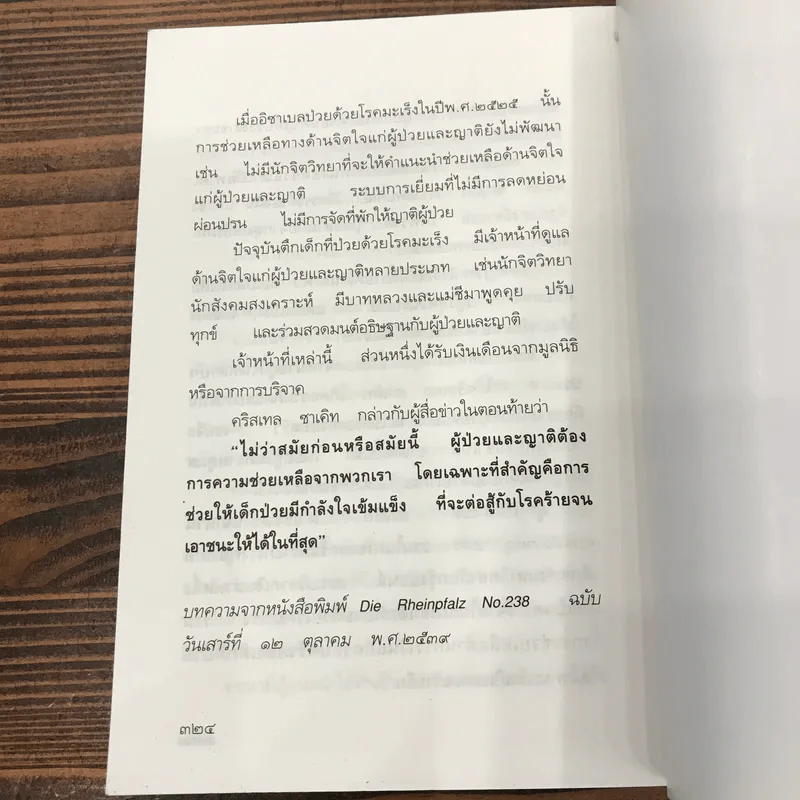 เมื่ออิซาเบลป่วยด้วยโรคมะเร็งในปีพ.ศ.๒๕๒๕ นั้น
การช่วยเหลือทางด้านจิตใจแก่ผู้ป่วยและญาติยังไม่พัฒนา
เช่น ไม่มีนักจิตวิทยาที่จะให้คำแนะนำช่วยเหลือด้านจิตใจ
แก่ผู้ป่วยและญาติ ระบบการเยี่ยมที่ไม่มีการลดหย่อน
ผ่อนปรน ไม่มีการจัดที่พักให้ญาติผู้ป่วย
ปัจจุบันตึกเด็กที่ป่วยด้วยโรคมะเร็ง มีเจ้าหน้าที่ดูแล
ด้านจิตใจแก่ผู้ป่วยและญาติหลายประเภท เช่นนักจิตวิทยา
นักสังคมสงเคราะห์ มีบาทหลวงและแม่ชีมาพูดคุย ปรับ
ทุกข์ และร่วมสวดมนต์อธิษฐานกับผู้ป่วยและญาติ
เจ้าหน้าที่เหล่านี้ ส่วนหนึ่งได้รับเงินเดือนจากมูลนิธิ
หรือจากการบริจาค
คริสเทล ซาเคิท กล่าวกับผู้สื่อข่าวในตอนท้ายว่า
“ไม่ว่าสมัยก่อนหรือสมัยนี้ ผู้ป่วยและญาติต้อง
การความช่วยเหลือจากพวกเรา โดยเฉพาะที่สำคัญคือการ
ช่วยให้เด็กป่วยมีกำลังใจเข้มแข็ง ที่จะต่อสู้กับโรคร้ายจน
เอาชนะให้ได้ในที่สุด”
บทความจากหนังสือพิมพ์ Die Rheinpfalz No.238 ฉบับ
วันเสาร์ที่ ๑๒ ตุลาคม พ.ศ.๒๕๓๙
๓๒๔